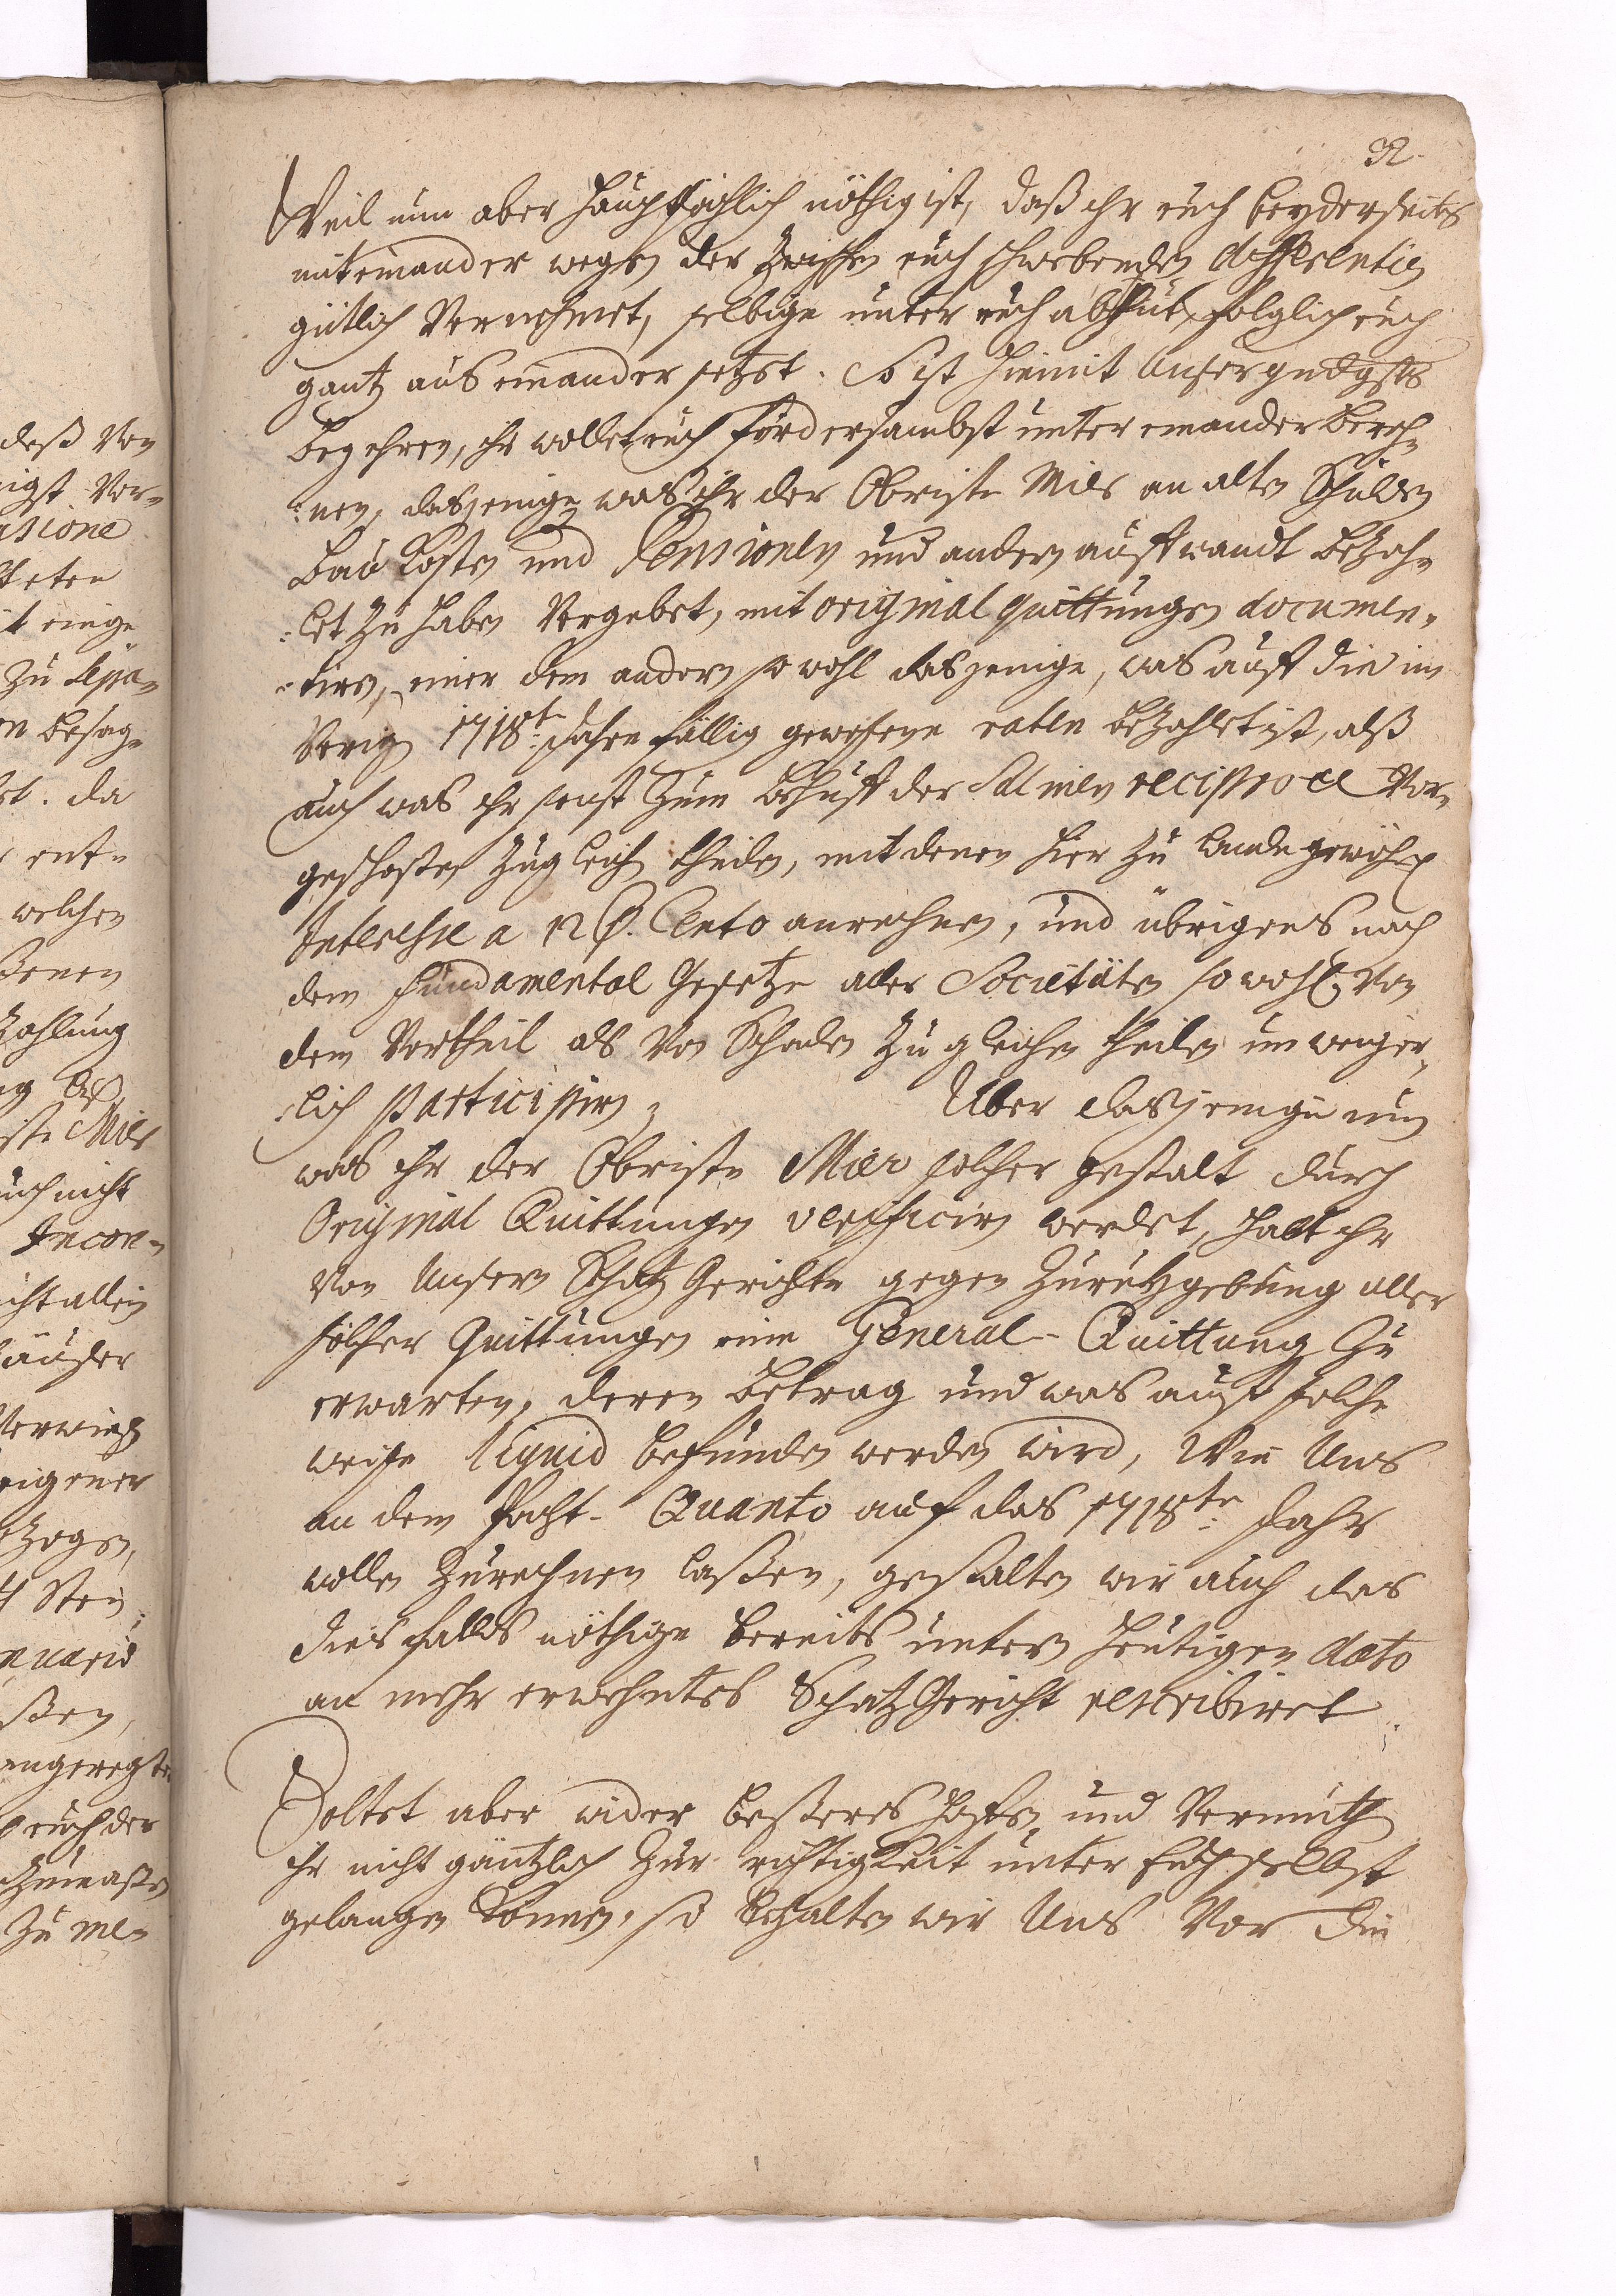 32.
Weil nun aber hauptsächlich nöthig ist, daß ihr euch beyderseits
miteinander wegen der zwischen euch schwebenden differentien
gütlich vernehmet, selbige unter euch abthut, folglich euch
gantz auseinander setzet. So ist hiemit Unser gndgstes
begehren, ihr wollet euch fördersambst unter einander berech-
:nen, dasjenige was ihr der Obriste Mier an alten Schulden
Bau Kosten und Pensionen und andern auffwandt bezah-
:let zu haben vorgebet, mit original quittungen documen-
:tiren, einer dem andern sowohl dasjenige, was auff die im
Vorig 1718ten Jahre fällig gewesene raten bezahlet ist, alß
auch was ihr sonst zum behuff der Salinen reciproce vor-
geschoßen zugleich theilen, mit denen hier zu Lande gewöhnl.
Interesse a 12 P. Cento anrechnen, und übrigens nach
dem fundamental Gesetze aller Societäten so wohl von
dem Vortheil als von Schaden zu gleichen theilen unweiger-
:lich participiren; Über dasjenige nun
was ihr der Obriste Mier solcher gestalt durch
Original Quittungen verificiren werdet, habt ihr
von Unserm Schatz Gerichte gegen Zurückgebung aller
solcher Quittungen eine General-Quittung zu
erwarten, deren betrag und was auff solche
weise liquid befunden werden wird, Wir Uns
an dem Pacht-Quanto auf das 1718te Jahr
wollen zurechnen laßen, gestalten wir auch das
dies falls nöthige bereits unterm heutigen dato
an mehr erwehntes Schatz Gericht rescribiret.
Soltet aber wider beßeres hoffen und Vermuthen
ihr nicht gäntzlich zur richtigkeit unter Euch selbst
gelangen können, so behalten wir Uns vor die
deß von
igst ver-
asione
teten
t einge
zu
en besage
et. da
ent-
welchen
ßenen
Zahlung
ste Mier
euch nicht
Incon-
icht allein
äuser
eigener
bzogen,
nuario
ßen,
angeregten
euch der
zu me-